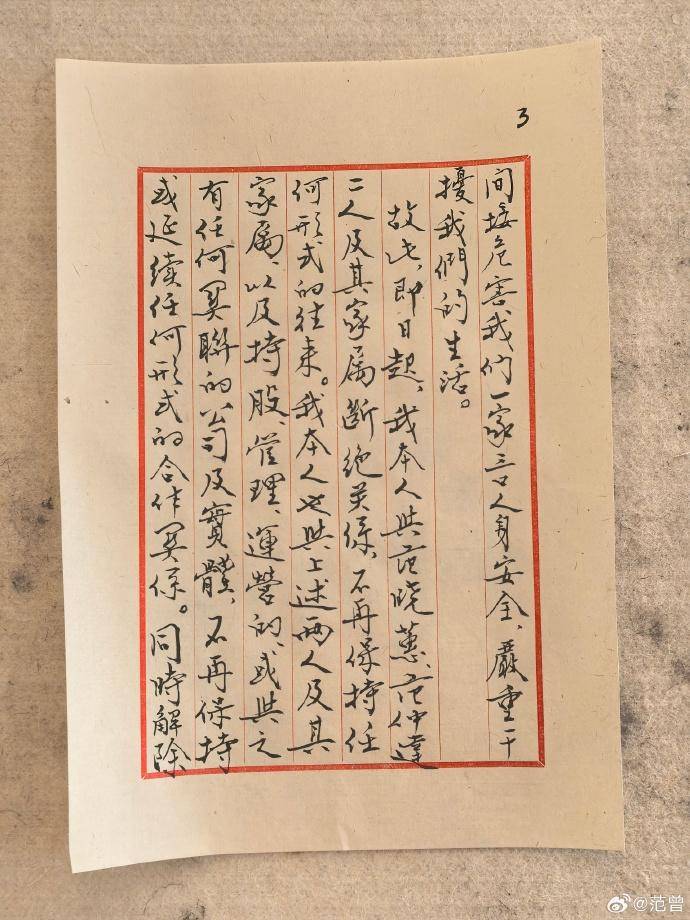 3
间接危害我们一家三口人身安全、嚴重干
擾我們的生活。
故此,即日起、我本人與范晓蕙、范仲達
二人及其家属斷绝关係、不再保持任
何形式的往来。我本人也與上述两人及其
家属、以及持股、管理、運營的、或與之
有任何関聯的公司及實體、不再保持
或延续任何形式的合作関係。同時解除
@范曾